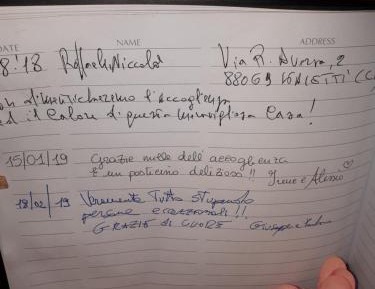 DATE NAME ADDRESS
8'18 Raffaele, Niccolò Via R. 2
88069
non dimenticheremo l'accoglienza
ed il calore di questa meravigliosa Casa!
15/01/19 Grazie mille dell'accoglienza
È un posticino delizioso!! Irene e Alessio
18/02/19 Veramente Tutto stupendo
persone eccezionali!!
GRAZIE di CUORE Giuseppe e